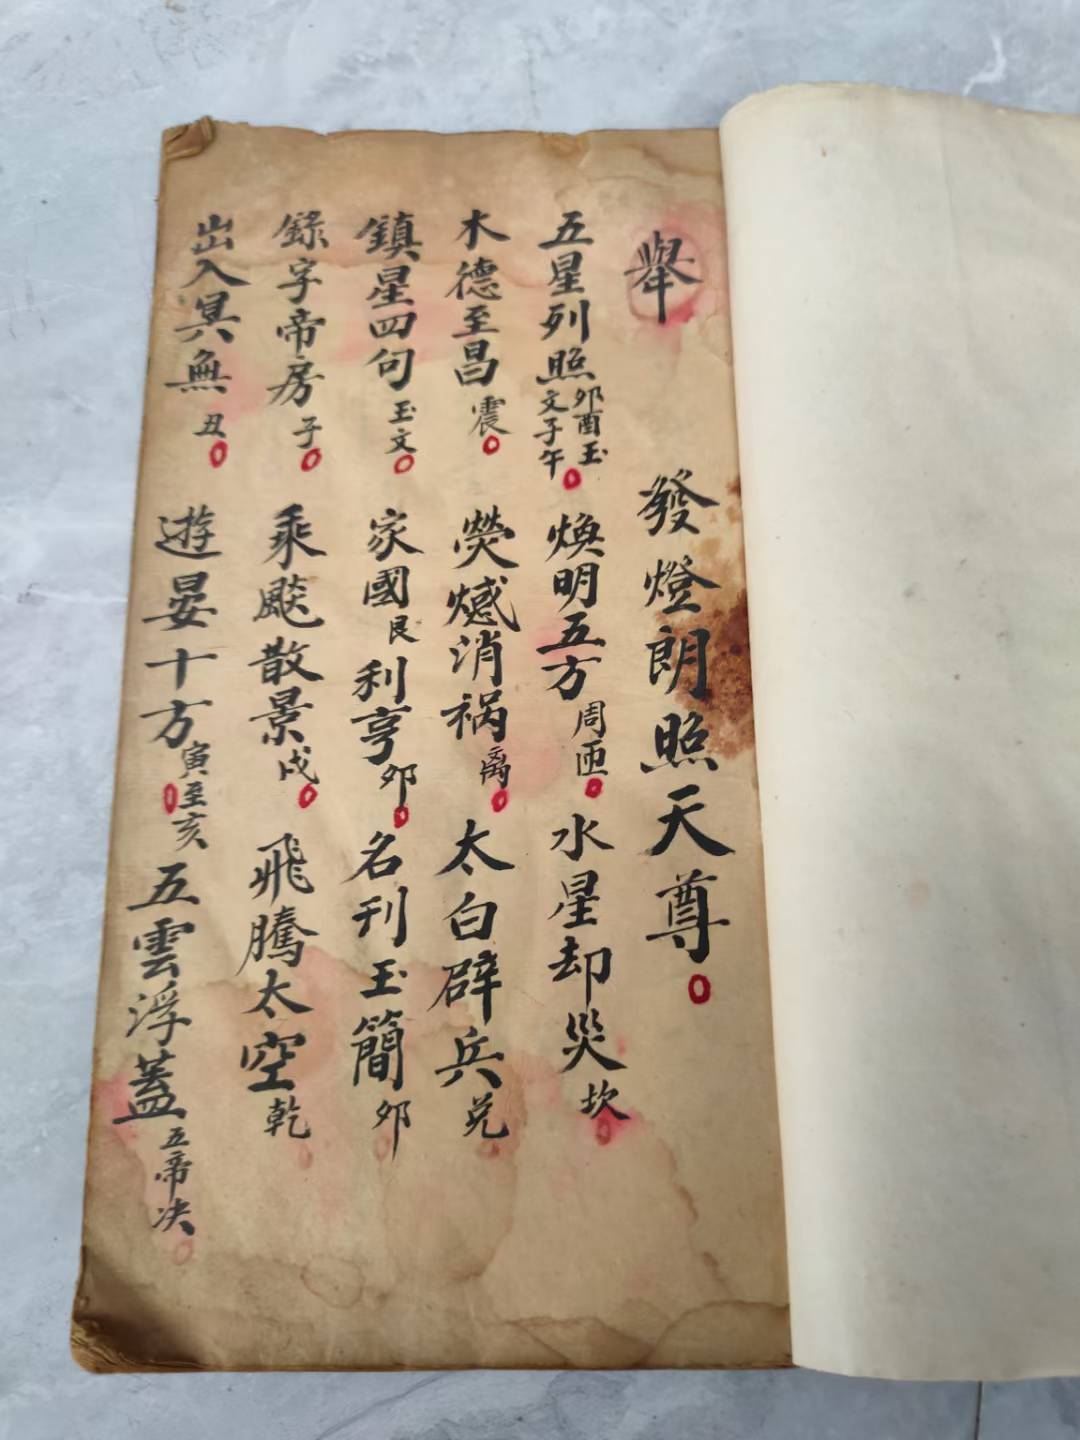 舉 發燈朗照天尊
五星列照 卯酉玉文子午 煥明五方 周匝 水星却災 坎
木德至昌 震 熒憾消祸 离 太白辟兵 兑
鎮星四句 玉文 家國 艮 利亨 卯 名刊玉簡 卯
錄字帝房 子 乘飈散景 戌 飛騰太空 乾
出入冥無 丑 遊晏十方 寅至亥 五雲浮蓋 五帝决